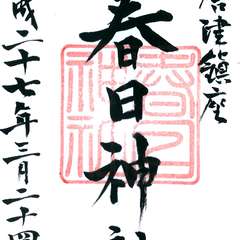 津鎮座
春日神社
成二十七年三月二十四
春日
神社